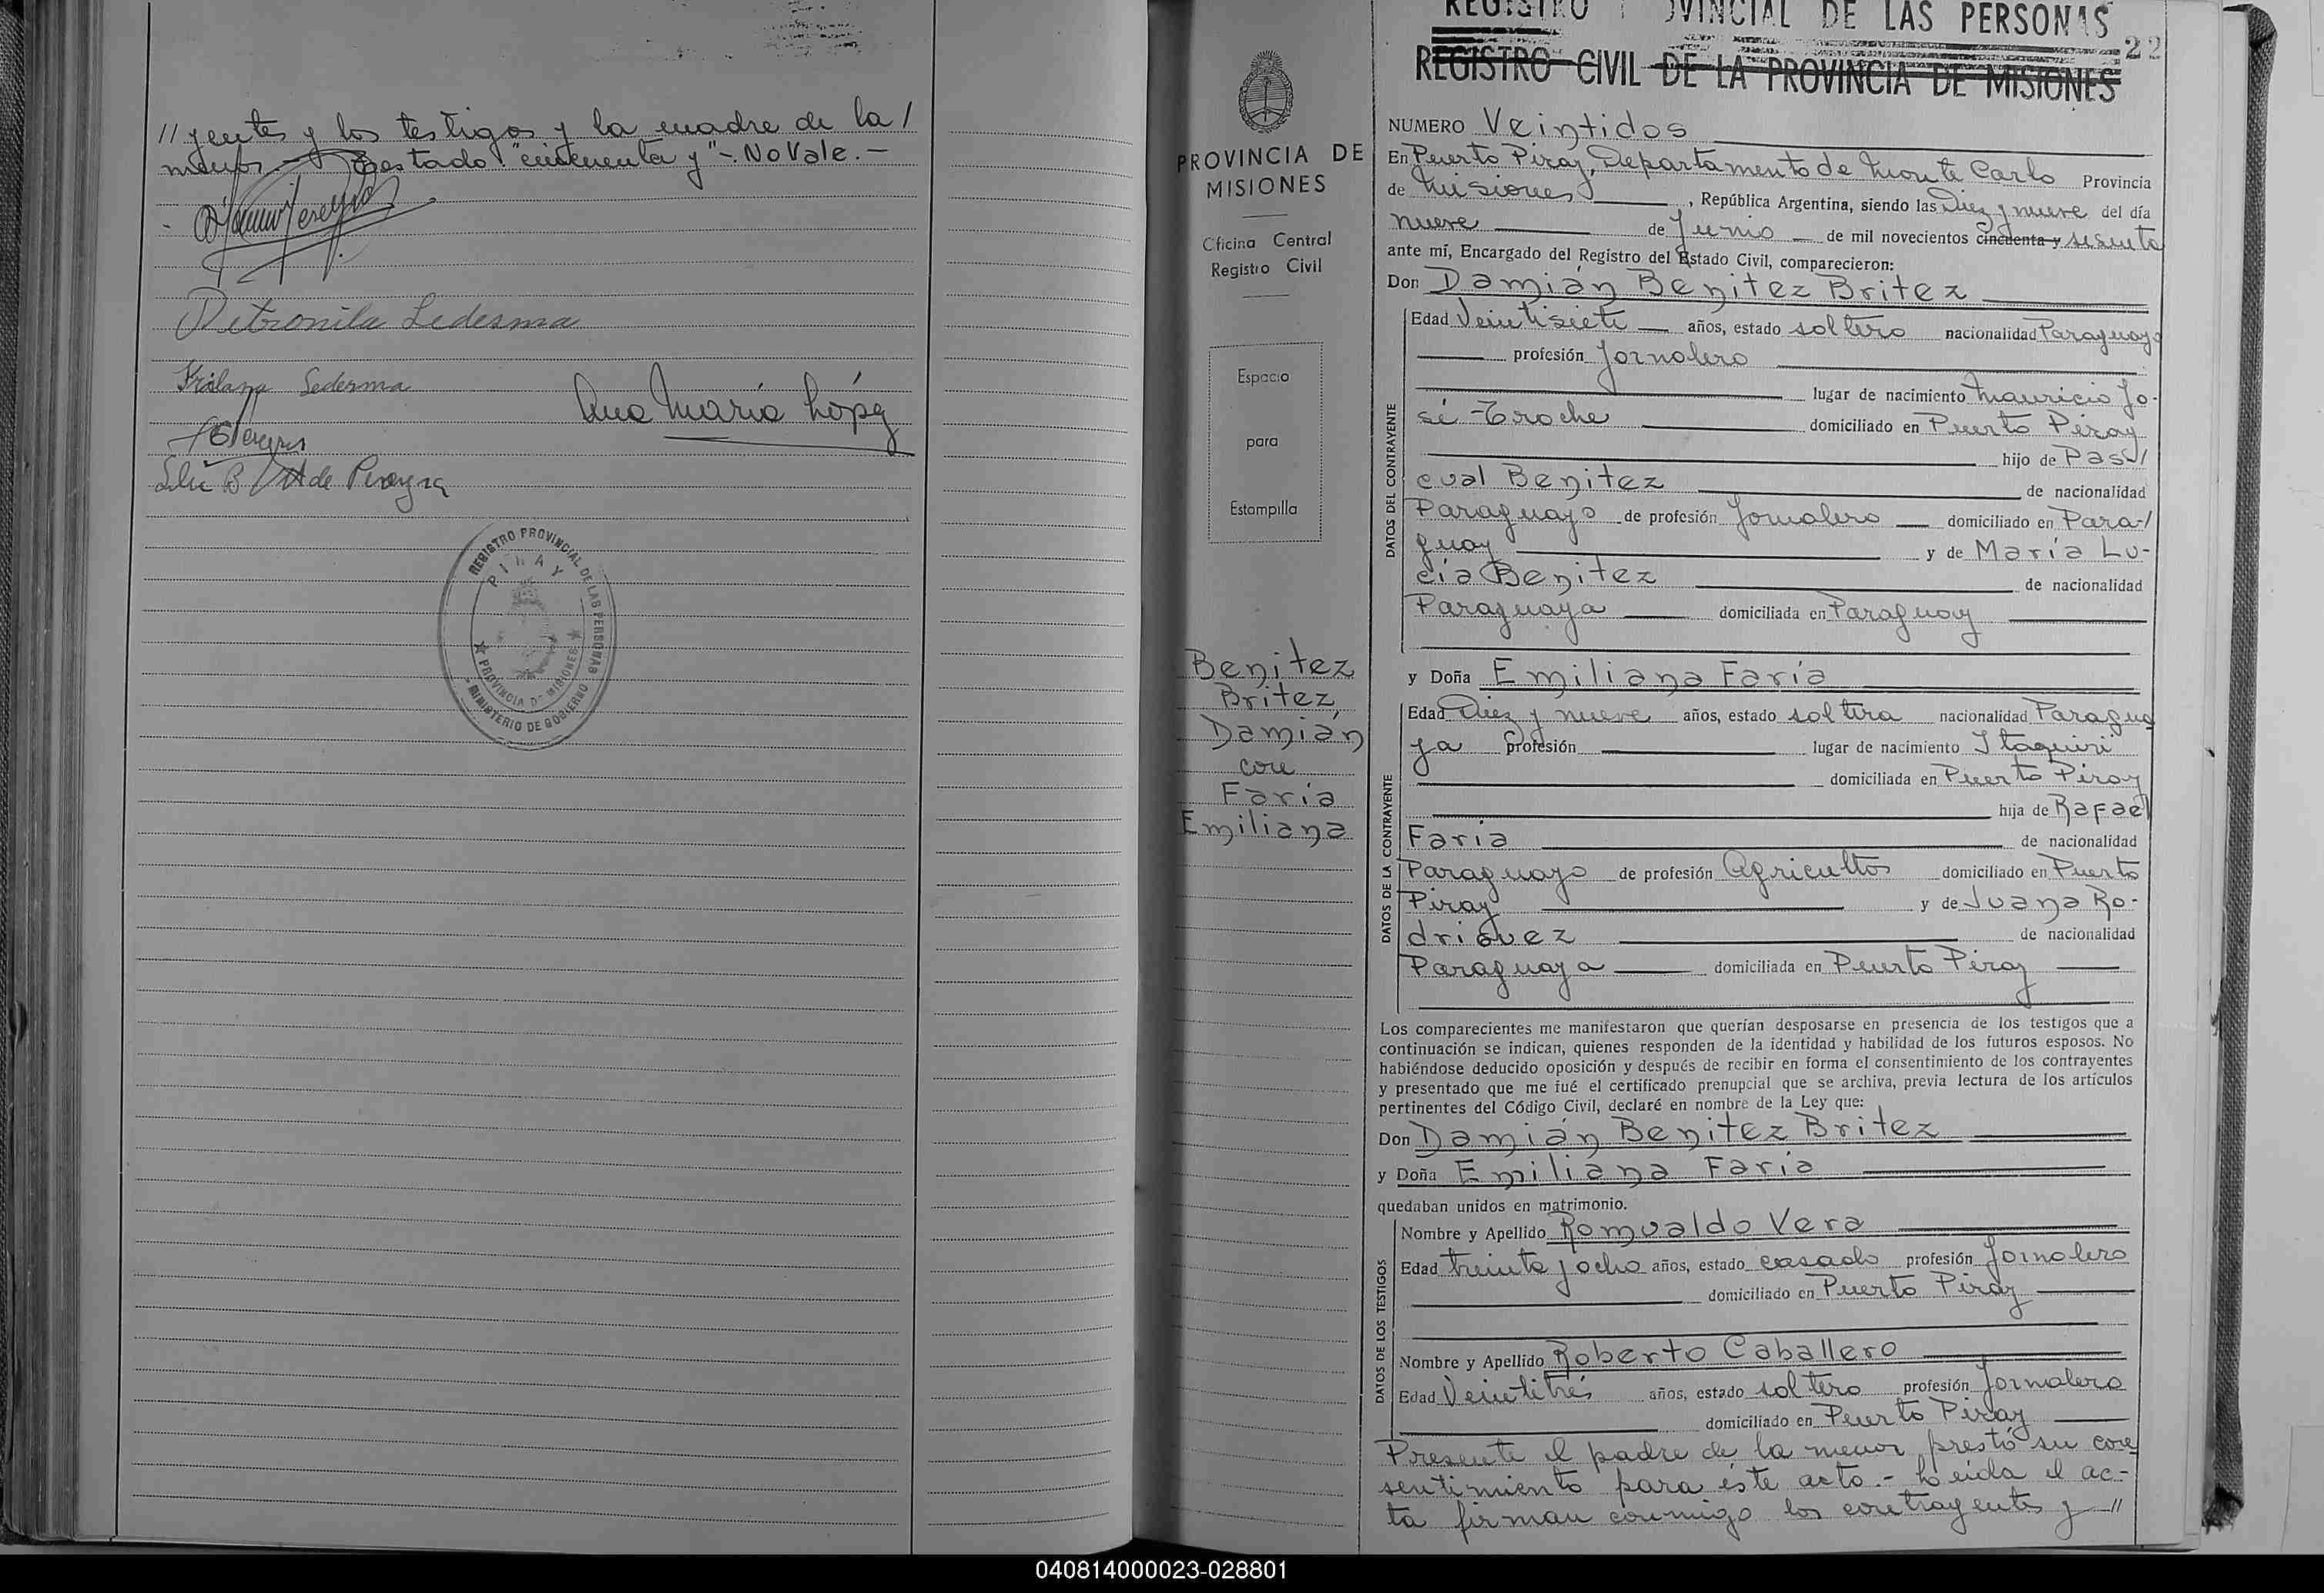 // yentes y los testigos y la madre de la /
menor.- Testado: "cincuenta y" -. No Vale. -
Petronila Ledesma
Ledesma
Ana María López
de Pereyra
REGISTRO PROVINCIAL DE LAS PERSONAS
PIRAY
PROVINCIA DE MISIONES
MINISTERIO DE GOBIERNO
PROVINCIA DE
MISIONES
Oficina Central
Registro Civil
Espacio
para
Estampilla
Benitez
Britez,
Damián
con
Faría
Emiliana
REGISTRO PROVINCIAL DE LAS PERSONAS
22
REGISTRO CIVIL DE LA PROVINCIA DE MISIONES
NUMERO Veintidos
En Puerto Piray, Departamento de Monte Carlo Provincia
de Misiones, República Argentina, siendo las Diez y nueve del día
nueve de Junio de mil novecientos cincuenta y sesenta
ante mí, Encargado del Registro del Estado Civil, comparecieron:
Don Damián Benitez Britez
DATOS DEL CONTRAYENTE
Edad Veintisiete años, estado soltero nacionalidad Paraguayo
profesión Jornalero
lugar de nacimiento Mauricio Jo-
sé Troche domiciliado en Puerto Piray
hijo de Pas/
cual Benitez de nacionalidad
Paraguayo de profesión Jornalero domiciliado en Para-/
guay y de María Lu-
cía Benitez de nacionalidad
Paraguaya domiciliada en Paraguay
y Doña Emiliana Faría
DATOS DE LA CONTRAYENTE
Edad Diez y nueve años, estado soltera nacionalidad Paragua
ya profesión lugar de nacimiento Itaquiri
domiciliada en Puerto Piray
hija de Rafael
Faria de nacionalidad
Paraguayo de profesión Agricultor domiciliado en Puerto
Piray y de Juana Ro-
driguez de nacionalidad
Paraguaya domiciliada en Puerto Piray
Los comparecientes me manifestaron que querían desposarse en presencia de los testigos que a
continuación se indican, quienes responden de la identidad y habilidad de los futuros esposos. No
habiéndose deducido oposición y después de recibir en forma el consentimiento de los contrayentes
y presentado que me fué el certificado prenupcial que se archiva, previa lectura de los artículos
pertinentes del Código Civil, declaré en nombre de la Ley que:
Don Damián Benitez Britez
y Doña Emiliana Faría
quedaban unidos en matrimonio.
DATOS DE LOS TESTIGOS
Nombre y Apellido Romualdo Vera
Edad treinta y ocho años, estado casado profesión Jornalero
domiciliado en Puerto Piray
Nombre y Apellido Roberto Caballero
Edad Veintitrés años, estado soltero profesión Jornalero
domiciliado en Puerto Piray
Presente el padre de la menor prestó su con
sentimiento para éste acto.- Leída el ac-
ta firman conmigo los contrayentes y //
040814000023-028801